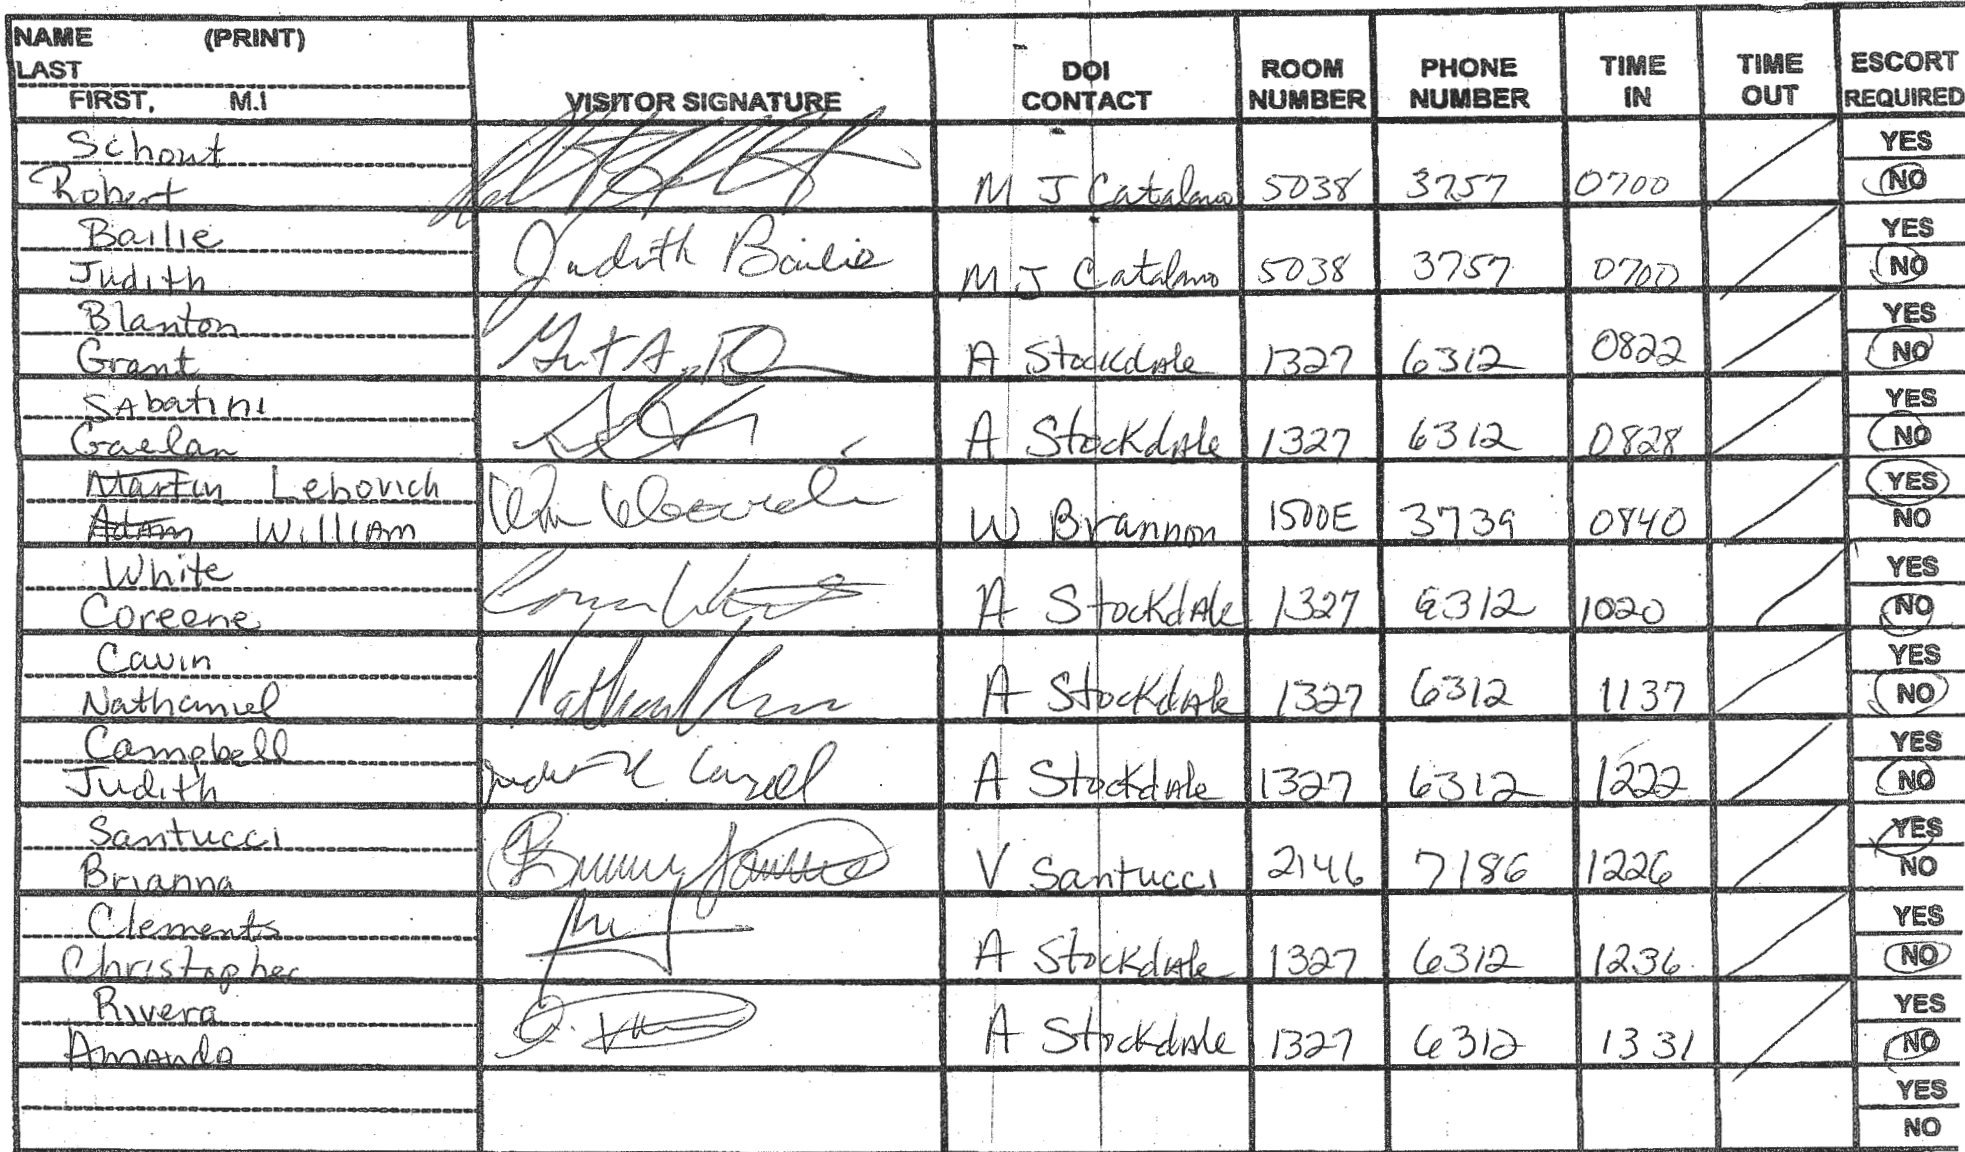 NAME (PRINT)
LAST
FIRST, M.I
VISITOR SIGNATURE
DOI CONTACT
ROOM NUMBER
PHONE NUMBER
TIME IN
TIME OUT
ESCORT REQUIRED
Schout
Robert
M J Catalano 5038 3757 0700 YES NO
Bailie
Judith
Judith Bailie M J Catalano 5038 3757 0700 YES NO
Blanton
Grant
A Stockdale 1327 6312 0822 YES NO
SAbatini
Gaelan
A Stockdale 1327 6312 0828 YES NO
Martin Lebovich
Adam William
W Brannon 1500E 3739 0840 YES NO
White
Coreene
A Stockdale 1327 6312 1020 YES NO
Cavin
Nathaniel
A Stockdale 1327 6312 1137 YES NO
Campbell
Judith
A Stockdale 1327 6312 1222 YES NO
Santucci
Brianna
V Santucci 2146 7186 1226 YES NO
Clements
Christopher
A Stockdale 1327 6312 1236 YES NO
Rivera
Amanda
A Stockdale 1327 6312 1331 YES NO
YES
NO